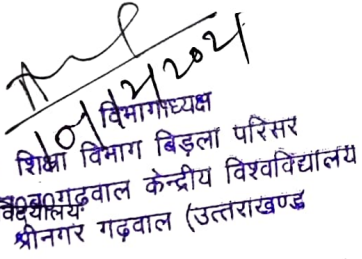 10/12/2021
विभागाध्यक्ष
शिक्षा विभाग बिड़ला परिसर
गढ़वाल केन्द्रीय विश्वविद्यालय
श्रीनगर गढ़वाल (उत्तराखण्ड